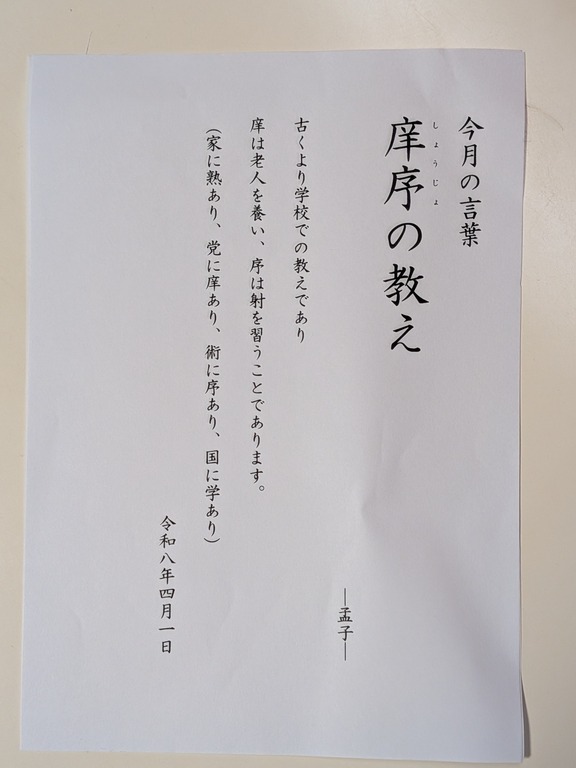 今月の言葉
庠序の教え
しょうじょ
―孟子―
古くより学校での教えであり
庠は老人を養い、序は射を習うことであります。
(家に熟あり、党に庠あり、術に序あり、国に学あり)
令和八年四月一日